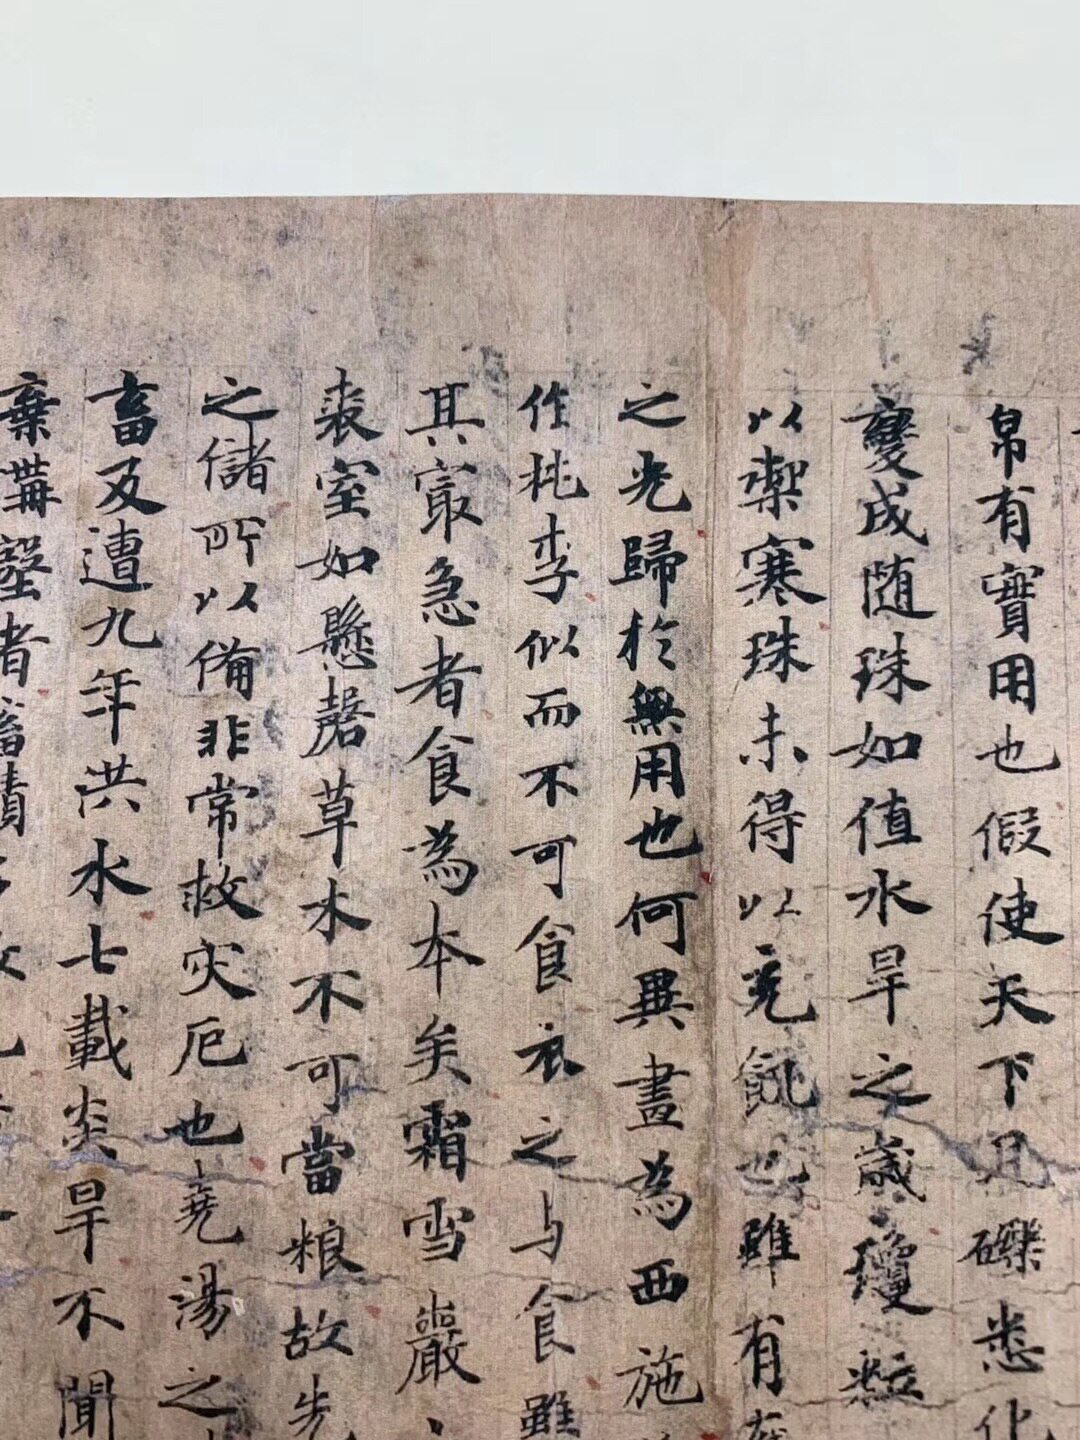 帛有寶用也假使天下瓦礫悉化
變成随珠如值水旱之歲瓊粒
以禦寒珠未得以充飢也雖有
之光歸於無用也何異畫為西施
作桃李似而不可食衣之与食雖
其冣急者食為本矣霜雪巖
裘室如懸磬草木不可當粮故先
之儲所以俻非常救灾厄也堯湯之
畜及遭九年洪水七載炎旱不聞
棄冓壑者蓄積